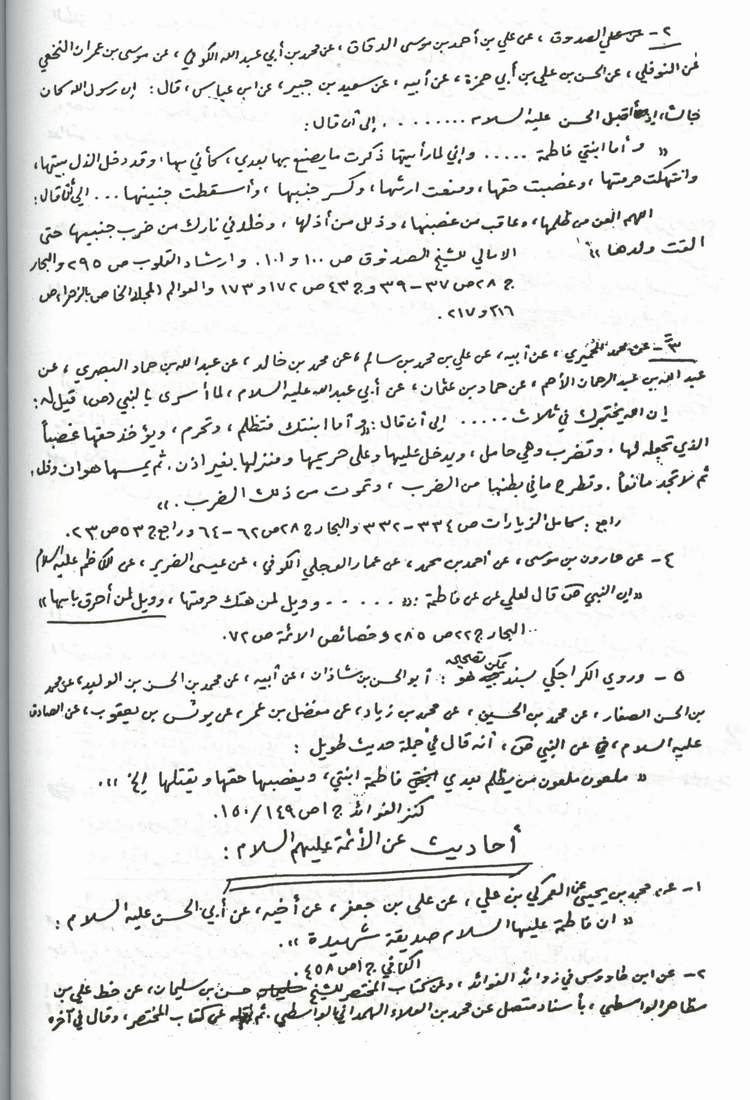 ٢ - عن علي الصدوق، عن علي بن أحمد بن موسى الدقاق، عن محمد بن أبي عبد الله الكوفي، عن موسى بن عمران النخعي
عن النوفلي، عن الحسن بن علي بن أبي حمزة، عن أبيه، عن سعيد بن جبير، عن ابن عباس، قال: إن رسول الله كان
جالساً، إذ أقبل الحسن عليه السلام ........ إلى أن قال:
« وأما ابنتي فاطمة ..... وإني لما رأيتها ذكرت ما يصنع بها بعدي، كأني بها وقد دخل الذل بيتها،
وانتهكت حرمتها، وغصبت حقها، ومنعت ارثها، وكسر جنبها، وأسقطت جنينها ... إلى أن قال:
اللهم العن من ظلمها، وعاقب من غصبها، وذلل من أذلها، وخلد في نارك من ضرب جنبيها حتى
ألقت ولدها »
الامالي للشيخ الصدوق ص ١٠٠ و ١٠١. وارشاد القلوب ص ٢٩٥ والبحار
ج ٢٨ ص ٣٧ - ٣٩ و ج ٤٣ ص ١٧٢ و ١٧٣ والعوالم (المجلد الخاص بالزهراء) ص
٢١٦ و ٢١٧.
٣ - عن محمد الحميري، عن أبيه، عن علي بن محمد بن سالم، عن محمد بن خالد، عن عبد الله بن حماد البصري، عن
عبد الله بن عبد الرحمان الأصم، عن حماد بن عثمان، عن أبي عبد الله عليه السلام، لما أسرى بالنبي (ص)، قيل له:
إن الله يختبرك في ثلاث ..... إلى أن قال: « وأما ابنتك فتظلم، وتحرم، ويؤخذ حقها غصباً
الذي تجعله لها. وتضرب وهي حامل، ويدخل عليها وعلى حريمها ومنزلها بغير اذن. ثم يمسها هوان وذل،
ثم لا تجد مانعاً. وتطرح ما في بطنها من الضرب، وتموت من ذلك الضرب. »
راجع: كامل الزيارات ص ٣٣٤ - ٣٣٢ والبحار ج ٢٨ ص ٦٢ - ٦٤ وراجع ج ٥٣ ص ٢٣.
٤ - عن هارون بن موسى، عن أحمد بن محمد، عن عمار العجلي الكوفي، عن عيسى الضرير، عن الكاظم عليه السلام
« ان النبي ص قال لعلي عن فاطمة: « ..... وويل لمن هتك حرمتها، وويل لمن أحرق بابها »
البحار ج ٢٢ ص ٤٨٥ وخصائص الائمة ص ٧٢.
٥ - وروي الكراجكي بسند يمكن تصحيحه هو: أبو الحسن بن شاذان، عن أبيه، عن محمد بن الحسن بن الوليد، عن محمد
بن الحسن الصفار، عن محمد بن الحسين، عن محمد بن زياد، عن مفضل بن عمر، عن يونس بن يعقوب، عن الصادق
عليه السلام، عن النبي ص، أنه قال في جملة حديث طويل:
« ملعون ملعون من يظلم بعدي فاطمة ابنتي، ويغصبها حقها ويقتلها إلخ ».
كنز الفوائد ج ١ ص ١٤٩/١٥٠.
أحاديث عن الأئمة عليهم السلام:
١ - عن محمد بن يحيى عن العمركي بن علي، عن علي بن جعفر، عن أخيه، عن أبي الحسن عليه السلام:
« ان فاطمة عليها السلام صديقة شهيدة ».
الكافي ج ١ ص ٤٥٨.
٢ - عن ابن طاووس في زوائد الفوائد، وعن كتاب المختصر للشيخ حسن بن سليمان، عن خط علي بن
مظاهر الواسطي، بأسناد متصل عن محمد بن العلاء الهمداني الواسطي. ثم عن كتاب المختصر، وقال في آخره